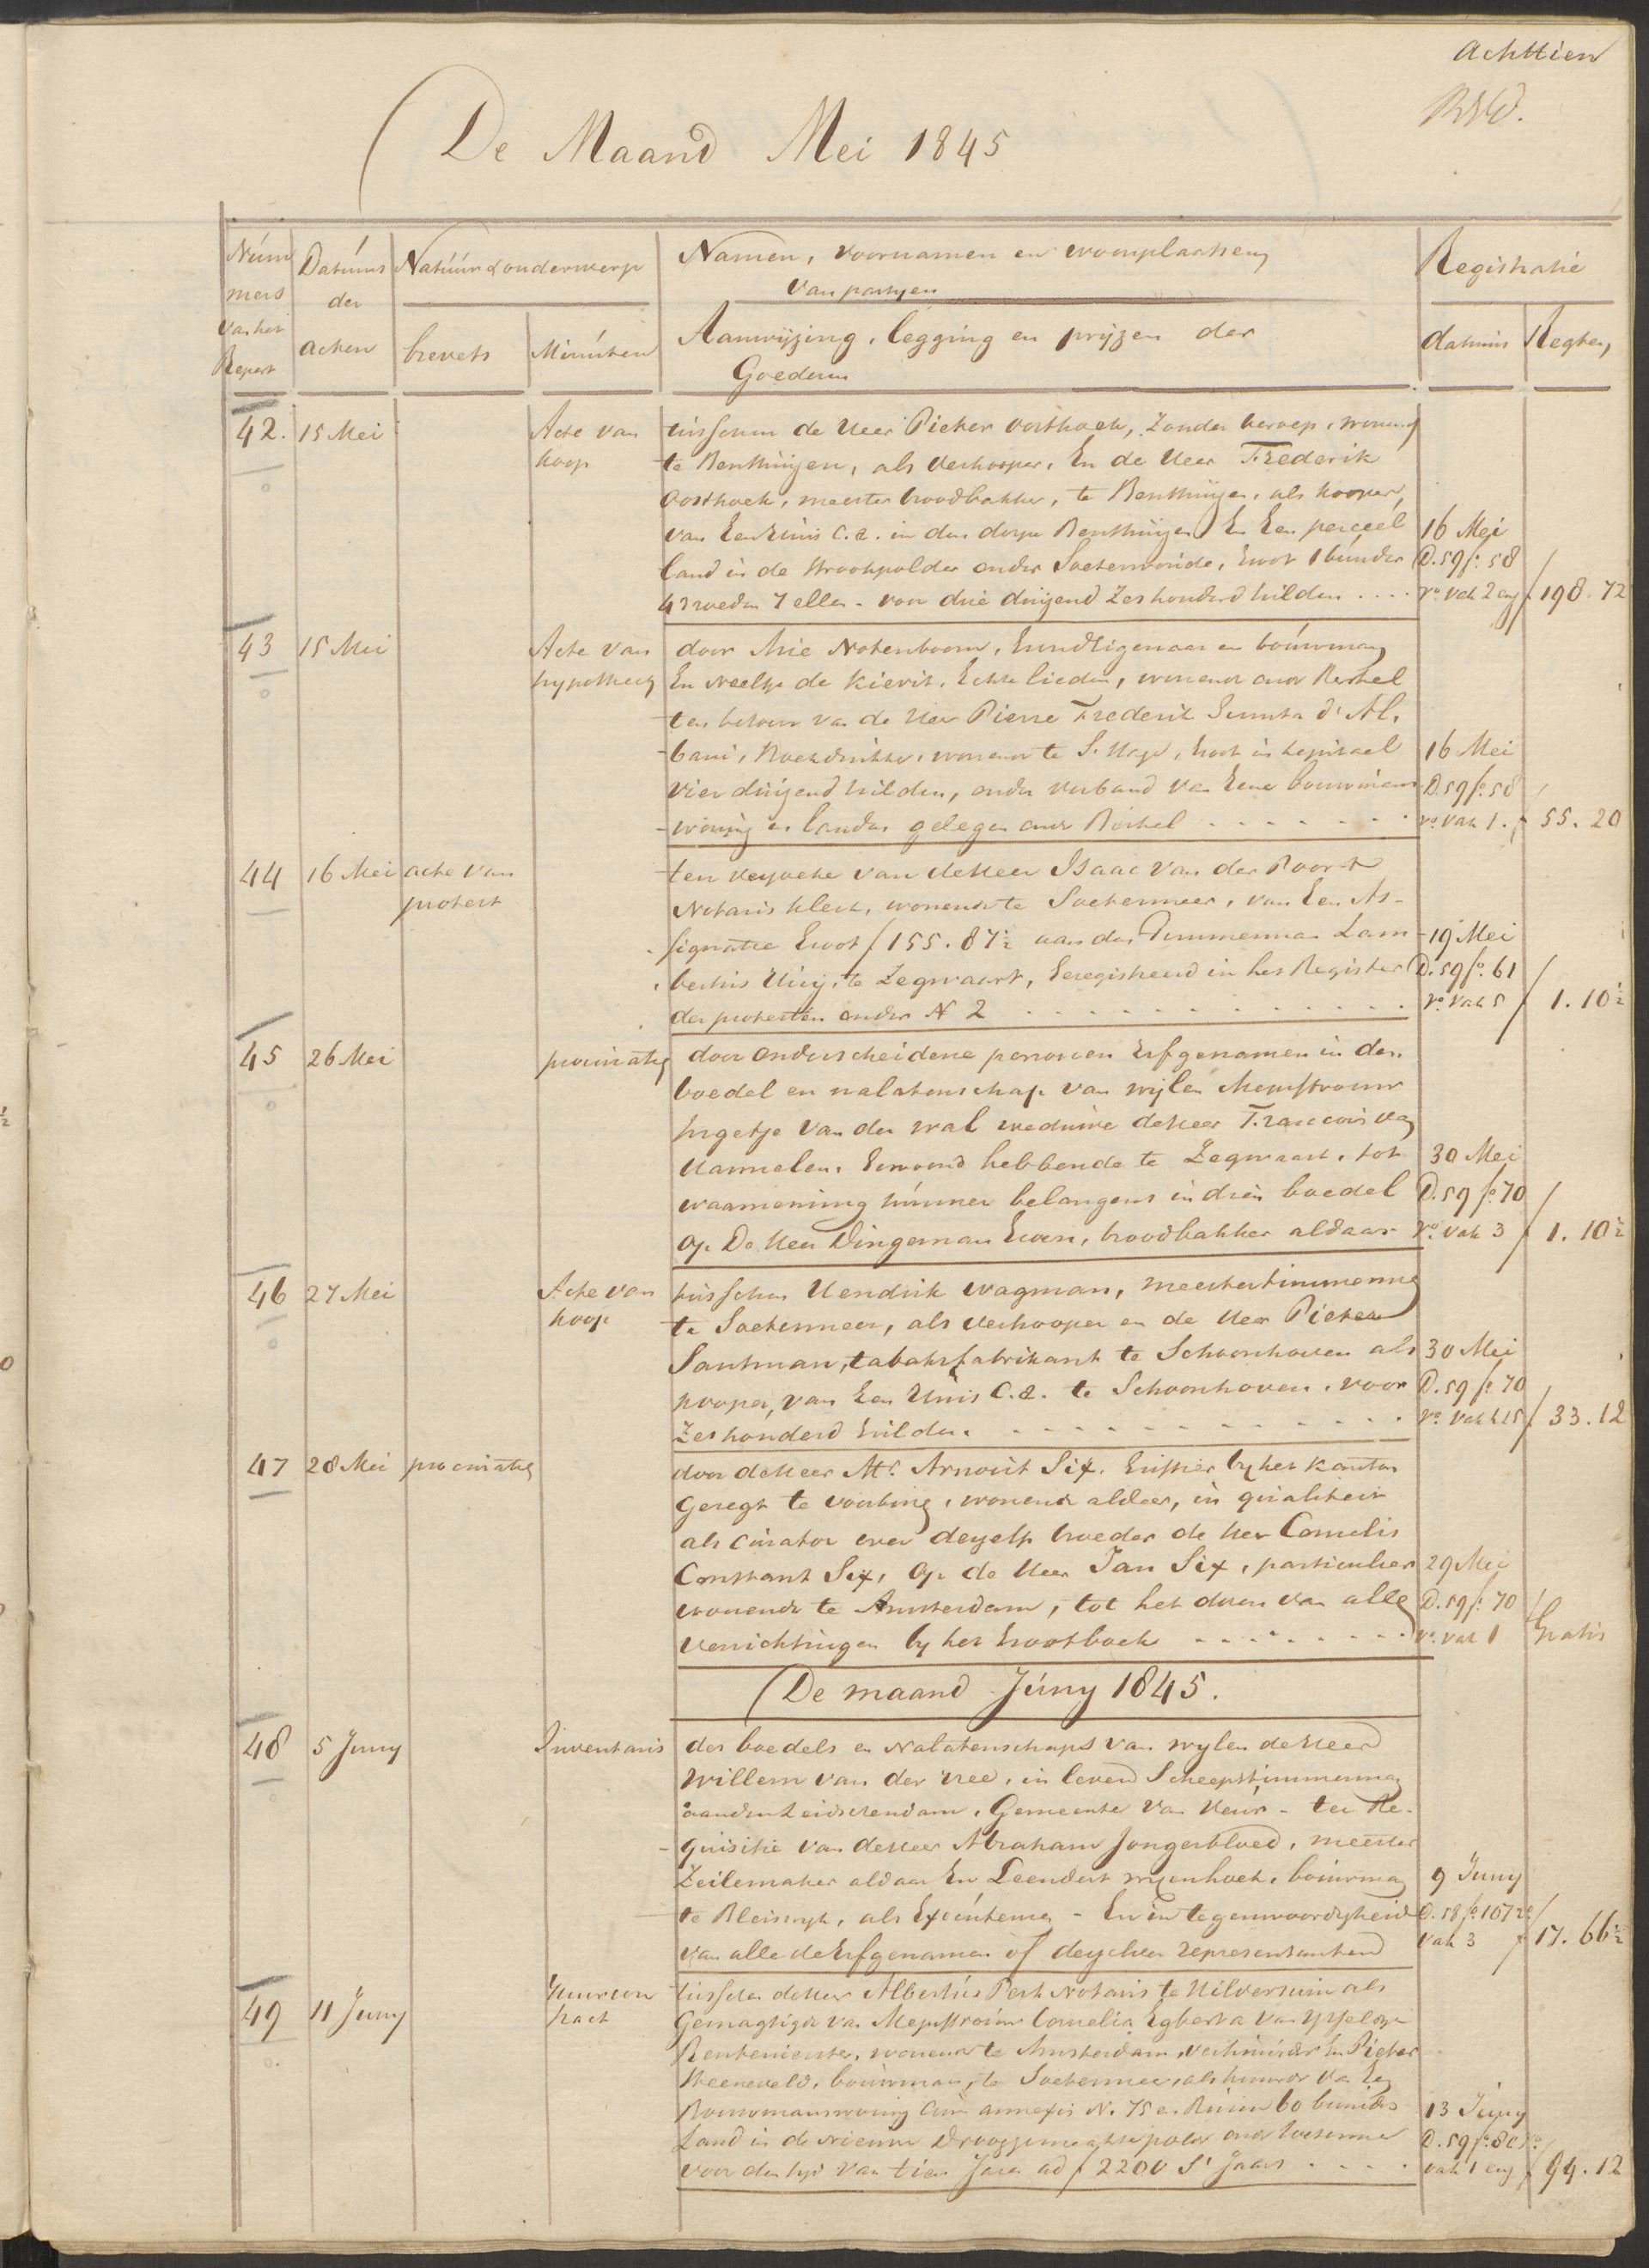 Achttien
De Maand Mei 1845
Num
mers
van het
Repert
Datums
der
acten
Natuur & onderwerp
brevets
Minuten
Namen, voornamen en woonplaatsen
van partyen
Aanwijzing, legging en prijzen der
Goederen
Registratie
datum
Regten
42. 15 Mei
Acte van
koop
tusschen de Heer Pieter Oosthoek, zonder beroep, wonende
te Benthuijzen, als Verkooper, En de Heer Frederik
Oosthoek, meester broodbakker, te Benthuijzen, als kooper,
van Een Huis c.a. in den dorpe Benthuijzen En Een perceel
land in de Strookpolder onder Soetermeer, Groot 1 bunder
43 roeden 7 ellen - voor drie duijzend Zes honderd Gulden ....
16 Mei
D. 59 fo. 58
ro. vak 2 en
f 198.72
43 15 Mei
Acte van
hypotheek
door Arie Notenboom, Grondeigenaar en bouwman
En Neeltje de Kievit, Echte lieden, wonende onder Berkel
ten behoeve van de Heer Pierre Frederik Giunta d'Al-
bani, Boekdrukker, wonende te S. Hage, Groot in kapitaal
vier duijzend Gulden, onder verband van Eene bouwmans
-woning en landen gelegen onder Berkel .......
16 Mei
D. 59 fo. 58
ro. vak 1.
f 55.20
44 16 Mei
acte van
protest
ten verzoeke van de Heer Isaac van der Poorte
Notaris klerk, wonende te Soetermeer, van Een As-
signatie Groot f 155.87½ aan den Timmerman Lam
bertus Uiij, te Zegwaart, Geregistreerd in het Register
der protesten onder N 2 ...........
19 Mei
D. 59 fo. 61
ro. vak 5
f 1.10½
45 26 Mei
procuratie
door Onderscheidene personen Erfgenamen in den
boedel en nalatenschap van wijlen Mejuffrouw
Ingetje van der Wal weduwe de Heer Francois van
Hammelen, Gewoond hebbende te Zegwaart, tot
waarneming hunner belangens in dien boedel
Op De Heer Dingeman Euren, broodbakker aldaar
30 Mei
D. 59 fo. 70
ro. vak 3
f 1.10½
46 27 Mei
Acte van
koop
tusschen Hendrik Wagman, meestertimmerman
te Soetermeer, als Verkooper en de Heer Pieter
Santman, tabaksfabrikant te Schoonhoven als
kooper, van Een Huis c.a. te Schoonhoven, voor
Zes honderd Gulden. ...........
30 Mei
D. 59 fo. 70
ro. vak 4 & 5
f 33.12
47 28 Mei
procuratie
door de Heer Mr. Arnout Six, Griffier by het Kanton
Geregt te Voorburg, wonende aldaar, in qualiteit
als Curator over deszelfs broeder de Heer Cornelis
Constant Six, Op de Heer Jan Six, particulier
wonende te Amsterdam, tot het doen van alle
verrichtingen by het Grootboek .........
29 Mei
D. 59 fo. 70
ro. vak 1
Gratis
De maand Juny 1845.
48 5 Juny
Inventaris
des boedels en Nalatenschaps van wylen de Heer
Willem van der Hee, in leven Scheepstimmerman
aan den Leidschendam, Gemeente van Veur - ter Re-
quisitie van de Heer Abraham Jongerbloed, meester
Zeilemaker aldaar En Leendert Wyenhoek, bouwman
te Bleiswyk, als Executeuren - En in tegenwoordigheid
van alle de Erfgenamen of derzelver representanten
9 Juny
D. 58 fo. 107 ro
vak 3
f 17.66½
49 11 Juny
Huurcon
tract
tusschen de Heer Albertus Perk Notaris te Hilversum als
Gemagtigde van Mejuffrouw Cornelia Egberta van Ysseldijk
Rentenierster, wonende te Amsterdam, verhuurder En Pieter
Steeneveld, bouwman, te Soetermeer, als huurder van Een
Bouwmanswoning Cum annexis N. 75 en Ruim 60 bunders
Land in de Nieuwe Drooggemaakte polder onder Soetermeer
voor den tyd van tien Jaren ad f 2200 S' Jaars ....
13 Juny
D. 59 fo. 80 ro
vak 1 en
f 94.12